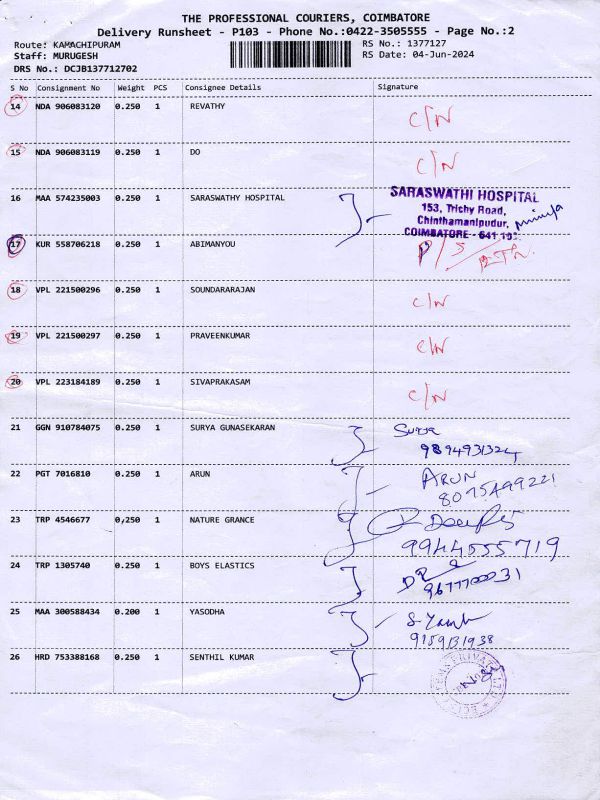 THE PROFESSIONAL COURIERS, COIMBATORE
Delivery Runsheet - P103 - Phone No.:0422-3505555 - Page No.:2
Route: KAMACHIPURAM RS No.: 1377127
Staff: MURUGESH RS Date: 04-Jun-2024
DRS No.: DCJB137712702
S No Consignment No Weight PCS Consignee Details Signature
14 NDA 906083120 0.250 1 REVATHY C/N
15 NDA 906083119 0.250 1 DO C/N
16 MAA 574235003 0.250 1 SARASWATHY HOSPITAL
SARASWATHI HOSPITAL
153, Trichy Road,
Chinthamanipudur,
COIMBATORE - 641 103.
17 KUR 558706218 0.250 1 ABIMANYOU
18 VPL 221500296 0.250 1 SOUNDARARAJAN C/N
19 VPL 221500297 0.250 1 PRAVEENKUMAR C/N
20 VPL 223184189 0.250 1 SIVAPRAKASAM C/N
21 GGN 910784075 0.250 1 SURYA GUNASEKARAN Surya
9894931324
22 PGT 7016810 0.250 1 ARUN ARUN
8075499221
23 TRP 4546677 0,250 1 NATURE GRANCE
9944555719
24 TRP 1305740 0.250 1 BOYS ELASTICS
9677700031
25 MAA 300588434 0.200 1 YASODHA
9159131938
26 HRD 753388168 0.250 1 SENTHIL KUMAR